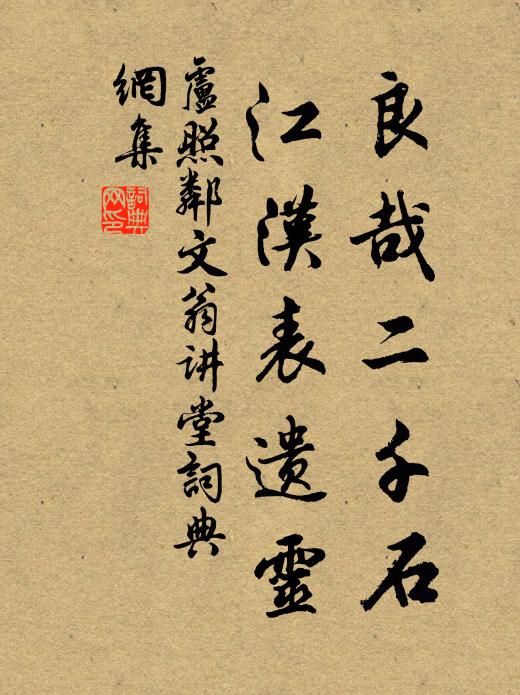 良哉二千石
江漢表遺靈
盧照鄰文翁讲堂詞典
網集
詞典网印